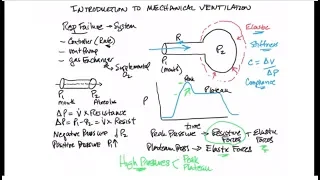 INTRODUCTION TO MECHANICAL VENTILATION
Resp Failure → System
- Controller (Rate)
- Vent Pump
- Gas Exchanger
→ Supplemental O2
P1 P2
mouth Alveolus
ΔP = V × Resistance
ΔP = P1 - P2 = V × Resist
Negative Pressure ↓P2
Positive Pressure P1↑
R
P1
(mouth)
P2
Elastic
Stiffness
C = ΔV
ΔP
Compliance
P
Peak
Plateau
time
Peak Pressure → Resistive Forces + Elastic Forces
Plateau Press → Elastic Forces
High Pressures
Peak
Plateau